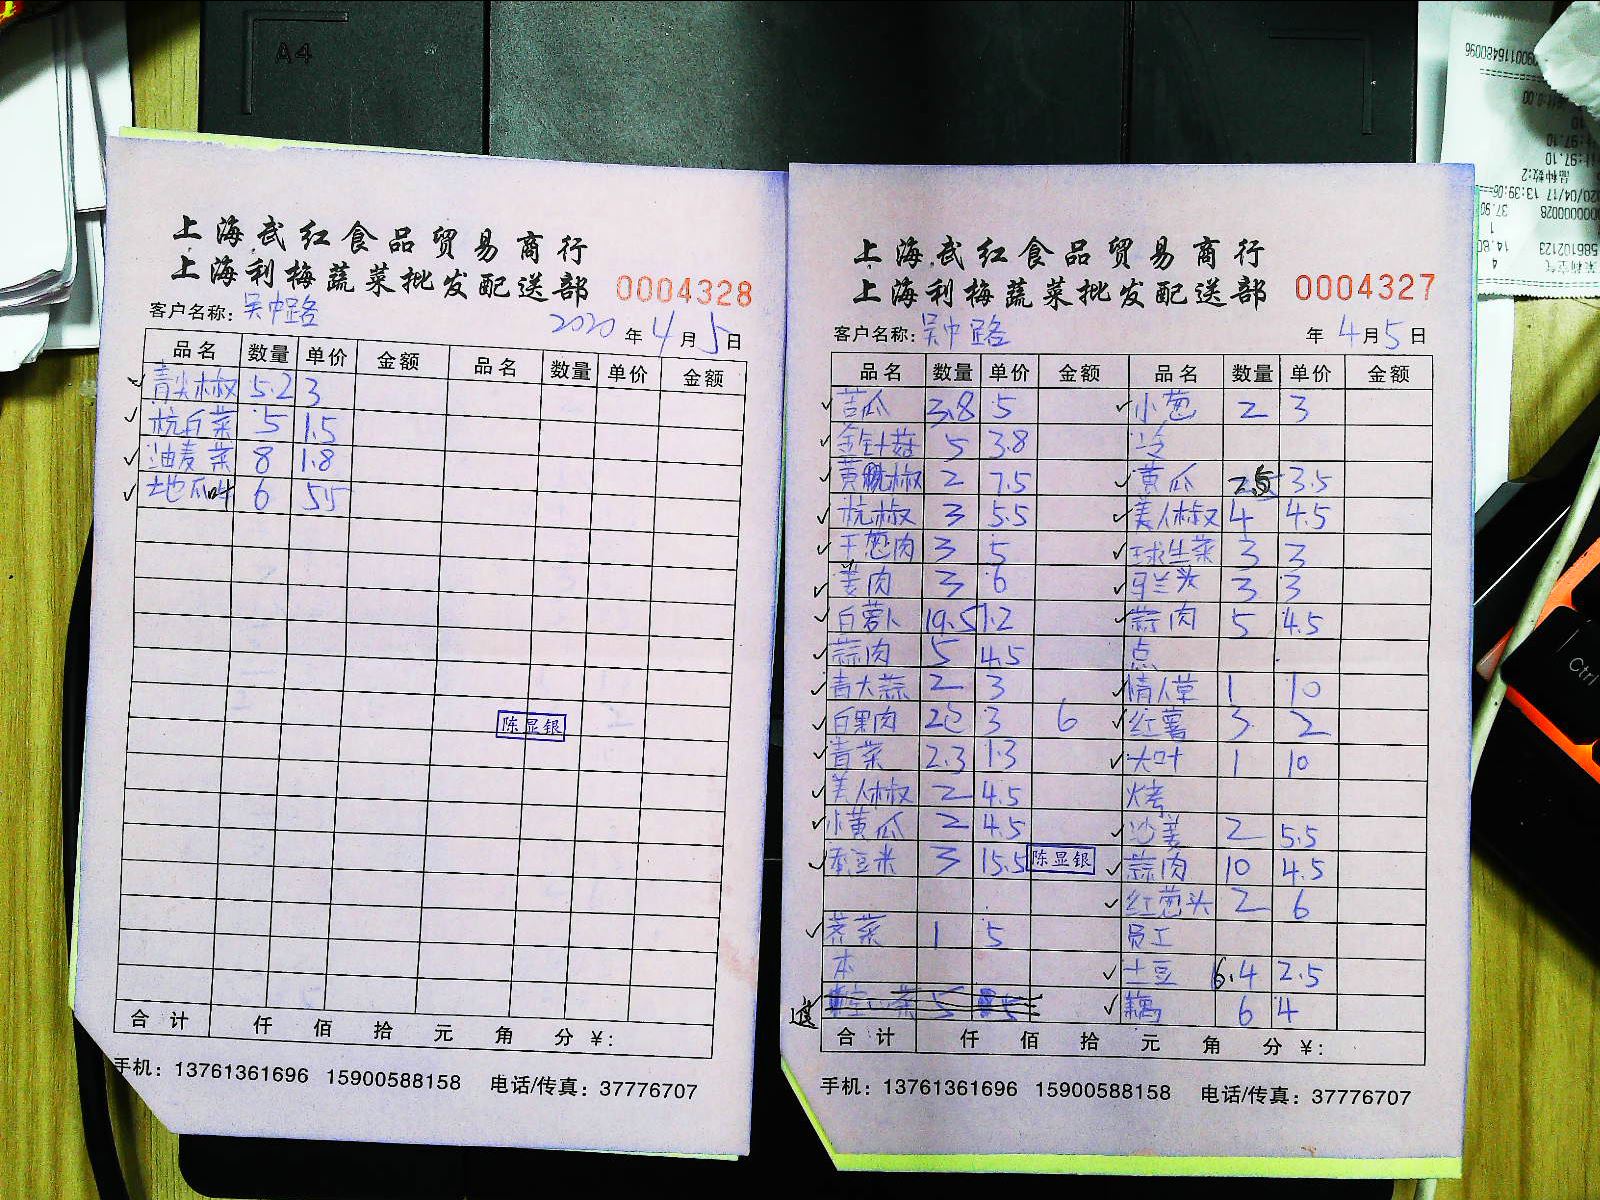 A4
上海武红食品贸易商行
上海利梅蔬菜批发配送部 0004328
客户名称：吴中路 2020年4月5日
品名 数量 单价 金额 品名 数量 单价 金额
青尖椒 5.2 3
杭白菜 5 1.5
油麦菜 8 1.8
地瓜叶 6 5.5
陈显银
合计 仟 佰 拾 元 角 分 ¥：
手机：13761361696 15900588158 电话/传真：37776707
上海武红食品贸易商行
上海利梅蔬菜批发配送部 0004327
客户名称：吴中路 年4月5日
品名 数量 单价 金额 品名 数量 单价 金额
苦瓜 3.8 5 小葱 2 3
金针菇 5 3.8 冷
黄椒 2 7.5 黄瓜 2.5 3.5
杭椒 3 5.5 美人椒 4 4.5
干葱肉 3 5 球生菜 3 3
姜肉 3 6 马兰头 3 3
白萝卜 19.5 1.2 蒜肉 5 4.5
蒜肉 5 4.5 点
青大蒜 2 3 情人草 1 10
白果肉 2包 3 6 红薯 3 2
青菜 2.3 1.3 大叶 1 10
美人椒 2 4.5 烤
小黄瓜 2 4.5 沙姜 2 5.5
豆米 3 15.5 陈显银 蒜肉 10 4.5
红葱头 2 6
荠菜 1 5 员工
本 土豆 6.4 2.5
退 藕 6 4
合计 仟 佰 拾 元 角 分 ¥：
手机：13761361696 15900588158 电话/传真：37776707
Ctrl